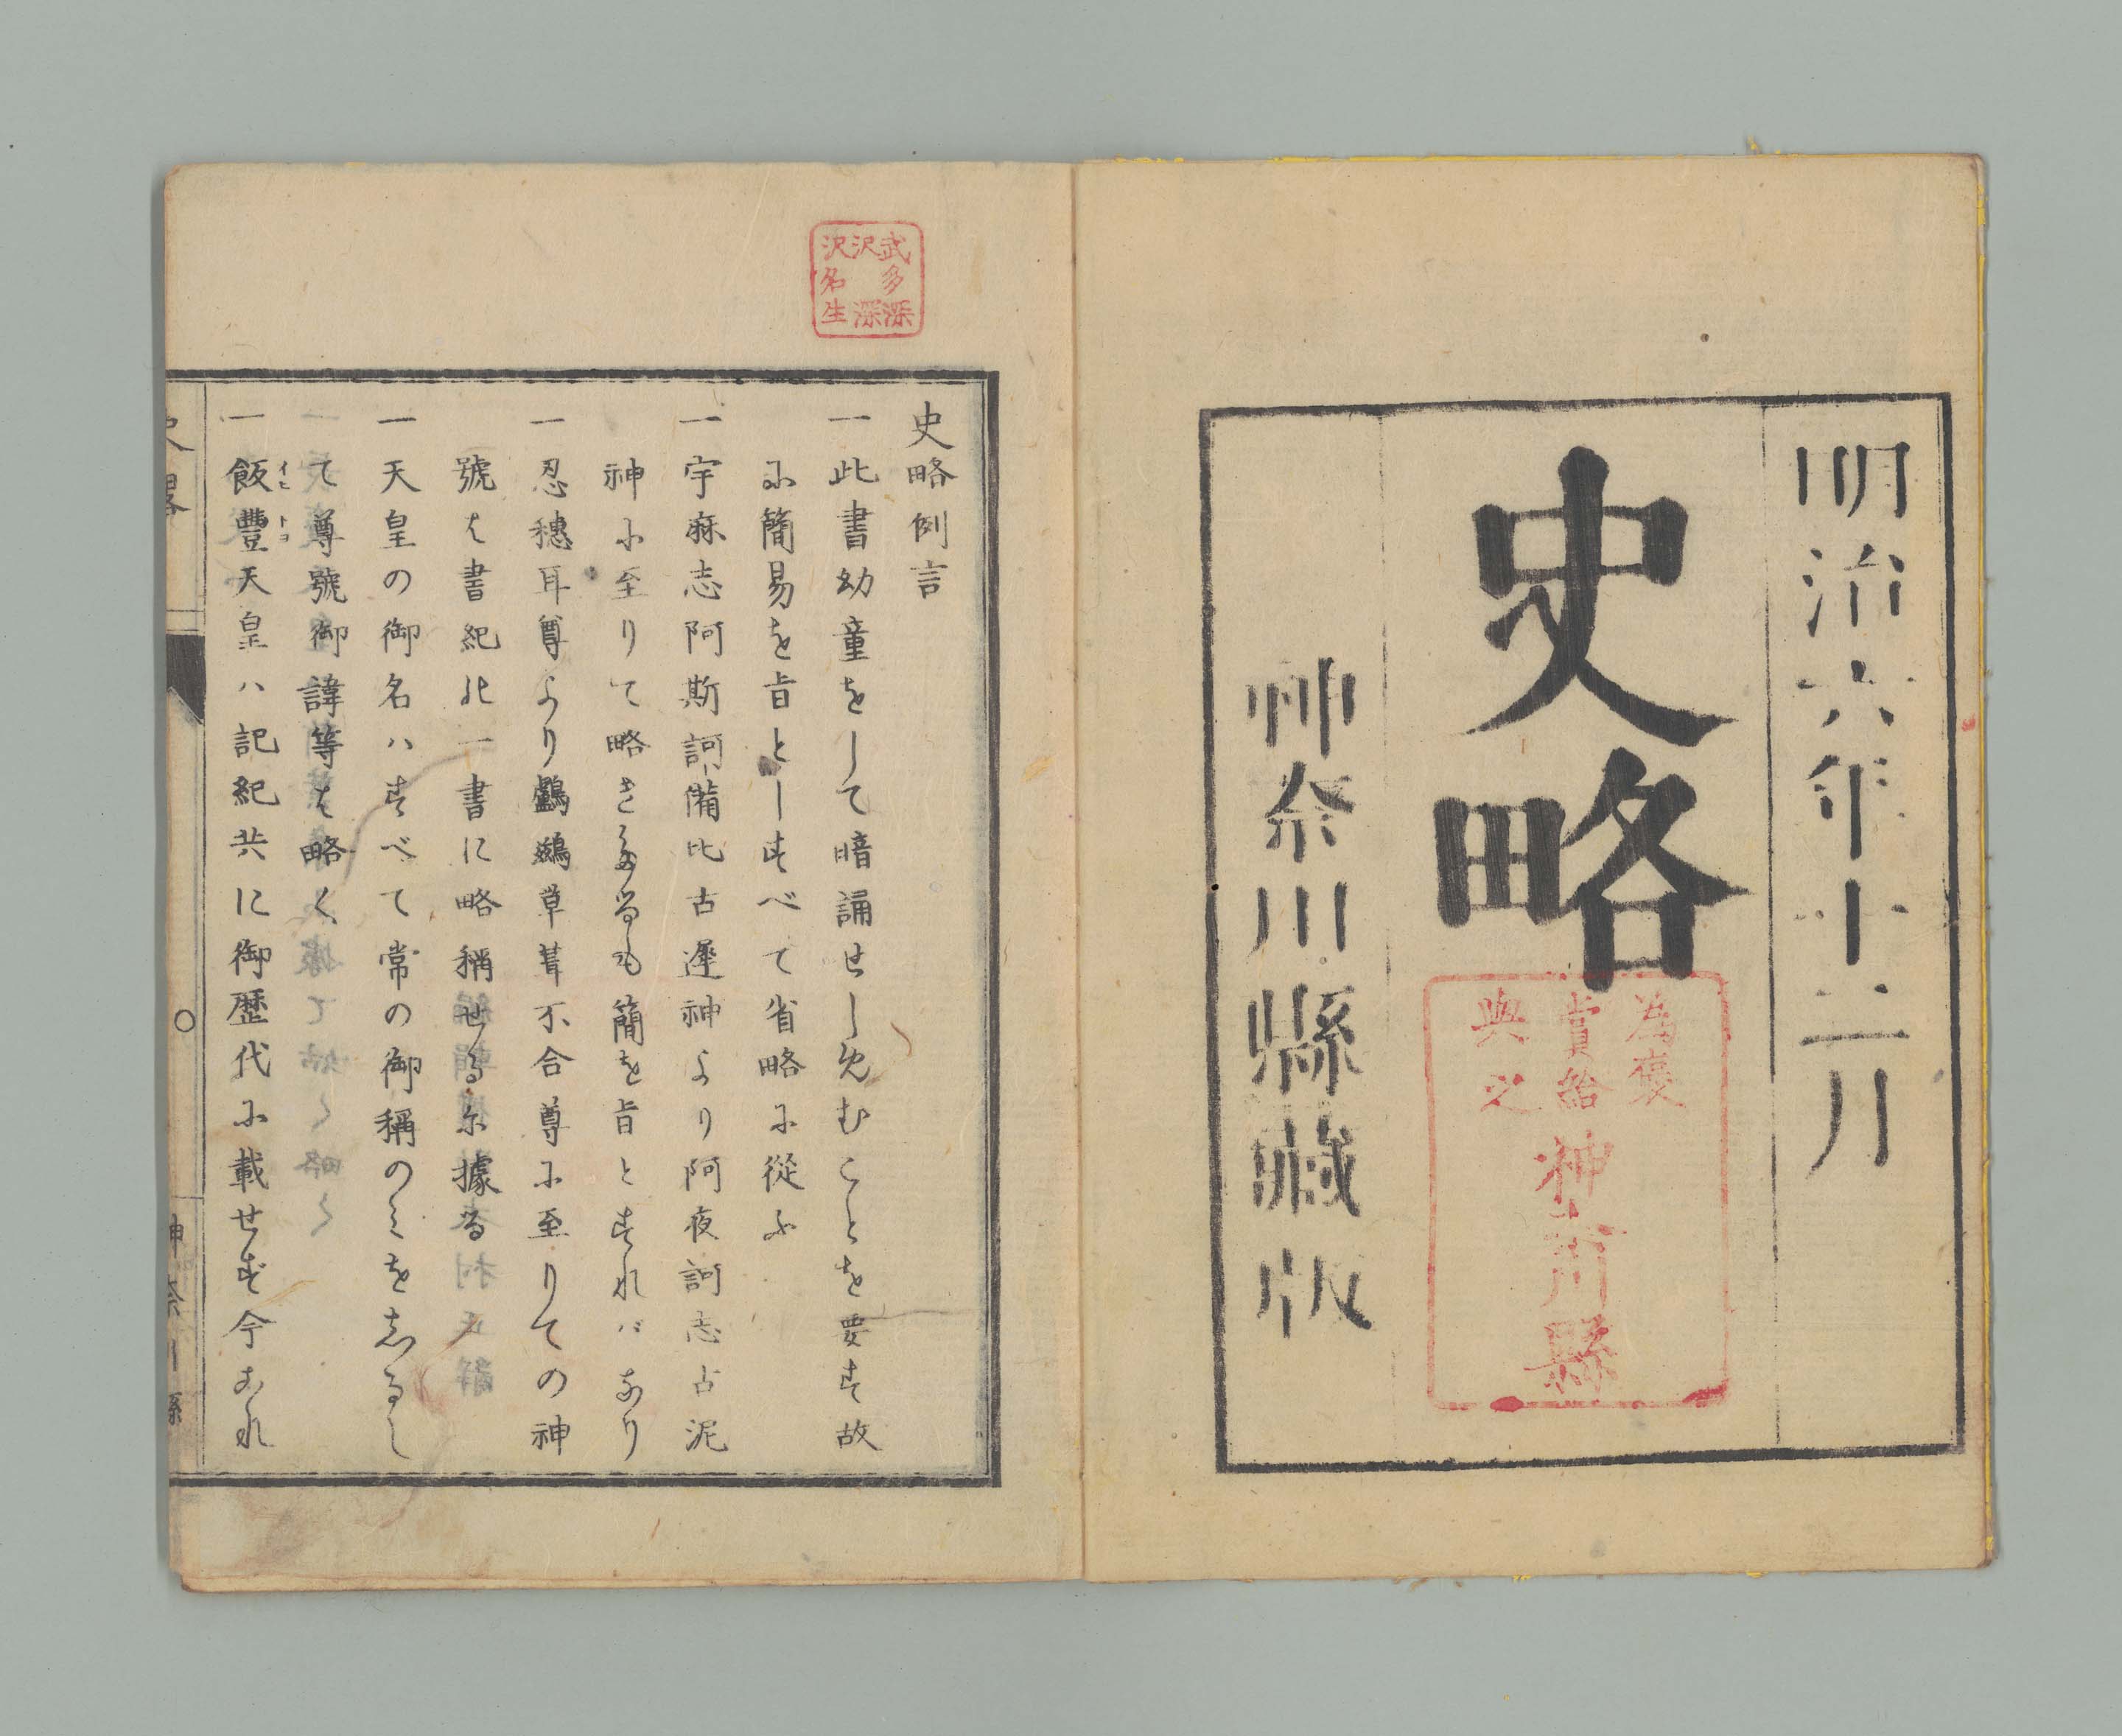 明治六年十二月
史略
神奈川縣藏版
為褒
賞給
與之
神奈川縣
武多深
沢深
沢名生
史略例言
一此書幼童をして暗誦せしめむことを要す故
に簡易を旨としすべて省略に従ふ
一宇麻志阿斯訶備比古遅神より阿夜訶志古泥
神に至りて略きたるも簡を旨とすれバなり
一忍穗耳尊より鸕鷀草葺不合尊に至りての神
號は書紀の一書に略稱せるに據る
一天皇の御名ハすべて常の御稱のミを志るし
て尊號御諱等は略く
一飯豐天皇ハ記紀共に御歷代に載せず今これ
イヒトヨ
史略
神奈川縣